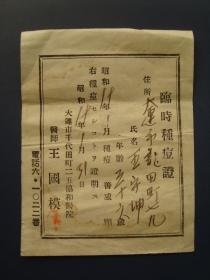 臨時種痘證
住所 大連市龍田町
氏名
年齡
昭和19年1月種痘 善感
右種痘セシコトヲ證明ス
昭和19年1月31日
大連市千代田町二五協和醫院
醫師 王國模
電話六・一〇二二番